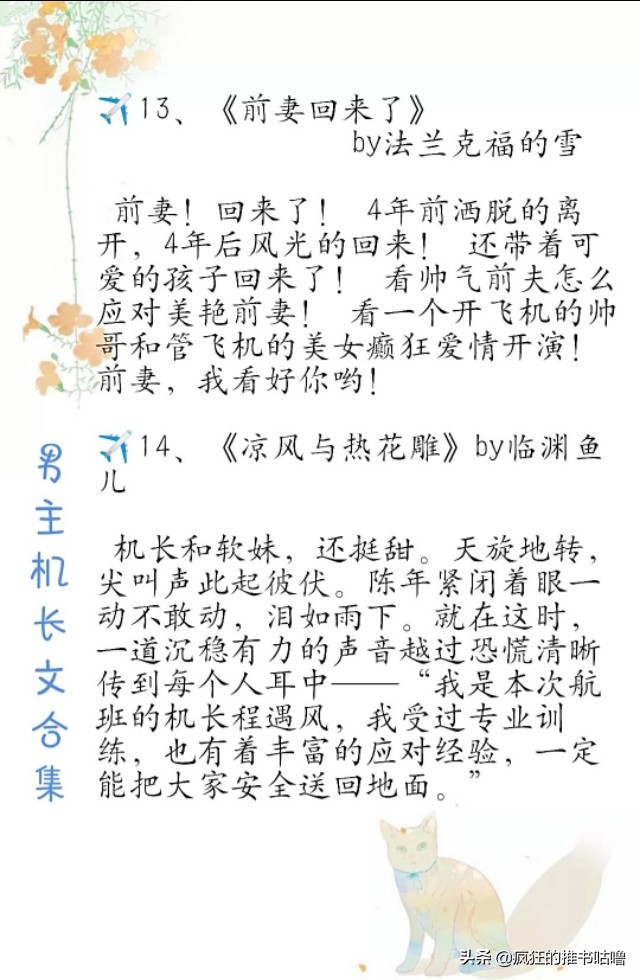 ✈️13、《前妻回来了》
by法兰克福的雪
前妻！回来了！ 4年前洒脱的离
开，4年后风光的回来！ 还带着可
爱的孩子回来了！ 看帅气前夫怎么
应对美艳前妻！ 看一个开飞机的帅
哥和管飞机的美女癫狂爱情开演！
前妻，我看好你哟！
✈️14、《凉风与热花雕》by临渊鱼
儿
机长和软妹，还挺甜。天旋地转，
尖叫声此起彼伏。陈年紧闭着眼一
动不敢动，泪如雨下。就在这时，
一道沉稳有力的声音越过恐慌清晰
传到每个人耳中——“我是本次航
班的机长程遇风，我受过专业训
练，也有着丰富的应对经验，一定
能把大家安全送回地面。”
男主机长文合集
头条 @疯狂的推书咕噜